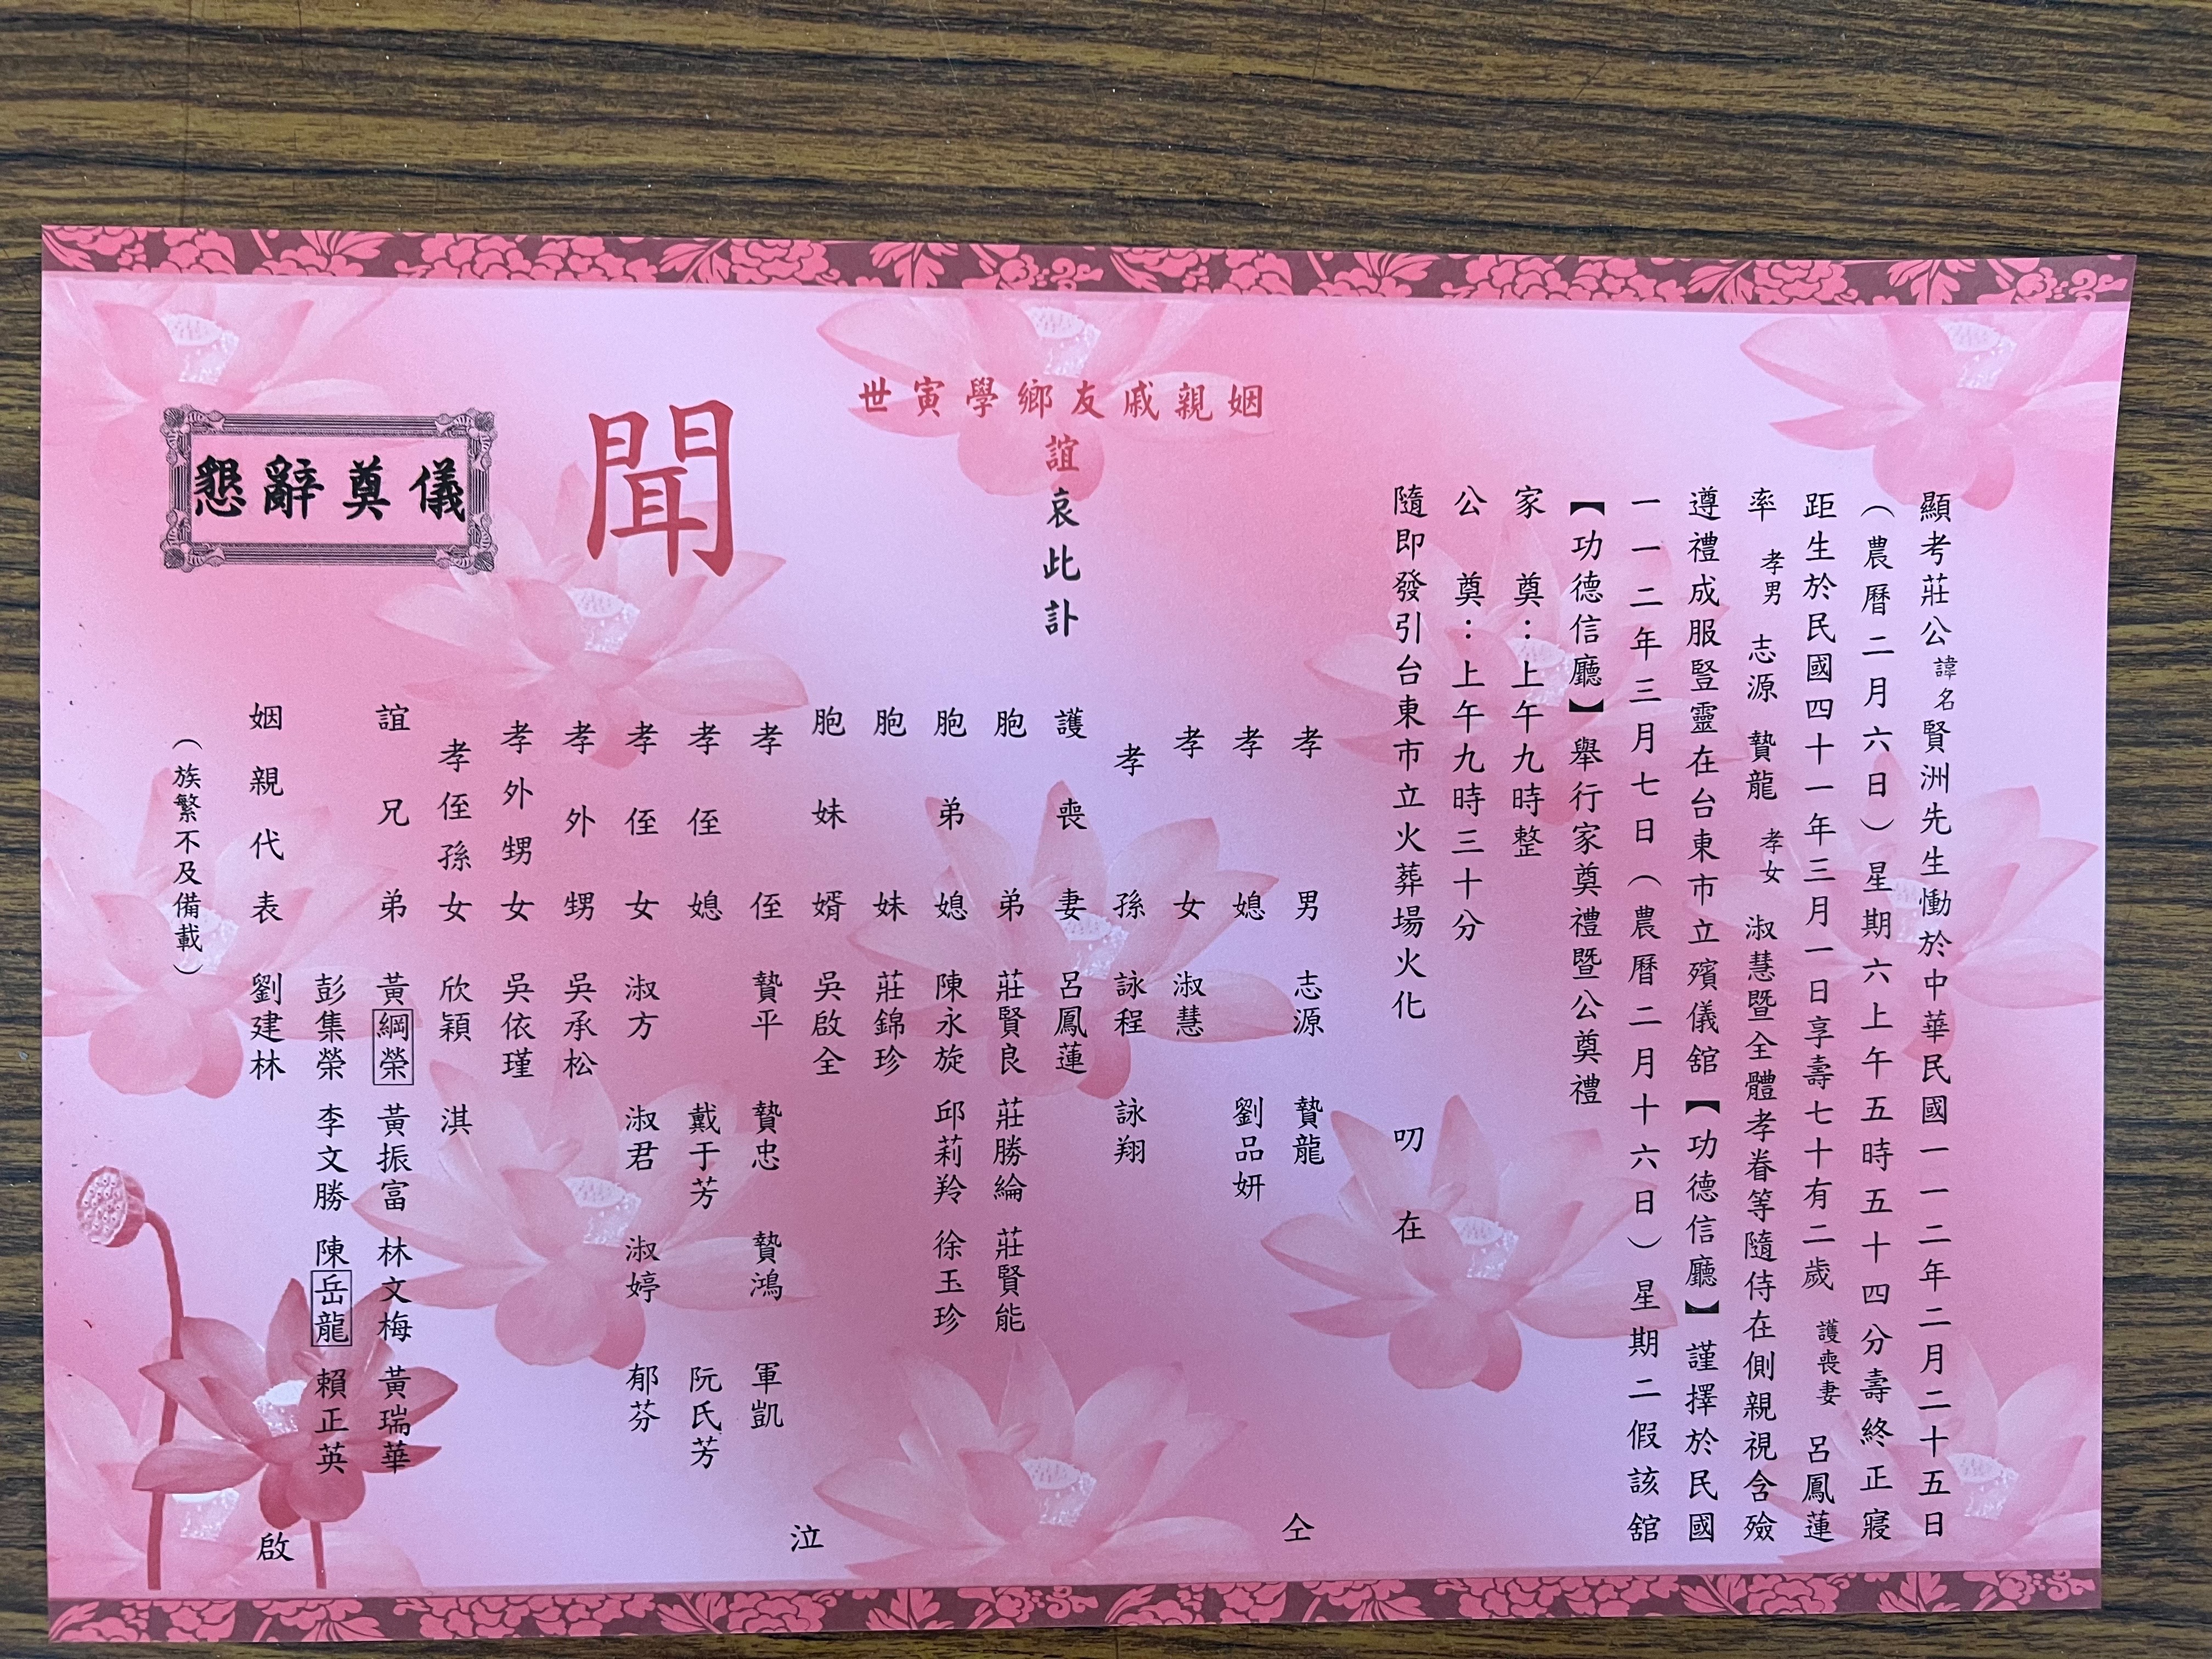 顯考莊公諱名賢洲先生慟於中華民國一一二年二月二十五日
（農曆二月六日）星期六上午五時五十四分壽終正寢
距生於民國四十一年三月一日享壽七十有二歲 護喪妻 呂鳳蓮
率 孝男 志源 贊龍 孝女 淑慧暨全體孝眷等隨侍在側親視含殮
遵禮成服豎靈在台東市立殯儀舘【功德信廳】謹擇於民國
一一二年三月七日（農曆二月十六日）星期二假該舘
【功德信廳】舉行家奠禮暨公奠禮
家 奠：上午九時整
公 奠：上午九時三十分
隨即發引台東市立火葬場火化 叨在
姻親戚友鄉學寅世
誼哀此訃
聞
孝男 志源 贄龍
孝媳 劉品妍
孝女 淑慧
孝孫 詠程 詠翔
護喪妻 呂鳳蓮
胞弟 莊賢良 莊勝綸 莊賢能
胞弟媳 陳永旋 邱莉羚 徐玉珍
胞妹 莊錦珍
胞妹婿 吳啟全
孝侄 贄平 贄忠 贄鴻 軍凱
孝侄媳 戴于芳 阮氏芳
孝侄女 淑方 淑君 淑婷 郁芬
孝外甥 吳承松
孝外甥女 吳依瑾
孝侄孫女 欣穎 淇
誼兄弟 黃綱榮 黃振富 林文梅 黃瑞華
彭集榮 李文勝 陳岳龍 賴正英
姻親代表 劉建林
（族繁不及備載）
仝
泣
啟
懇辭奠儀